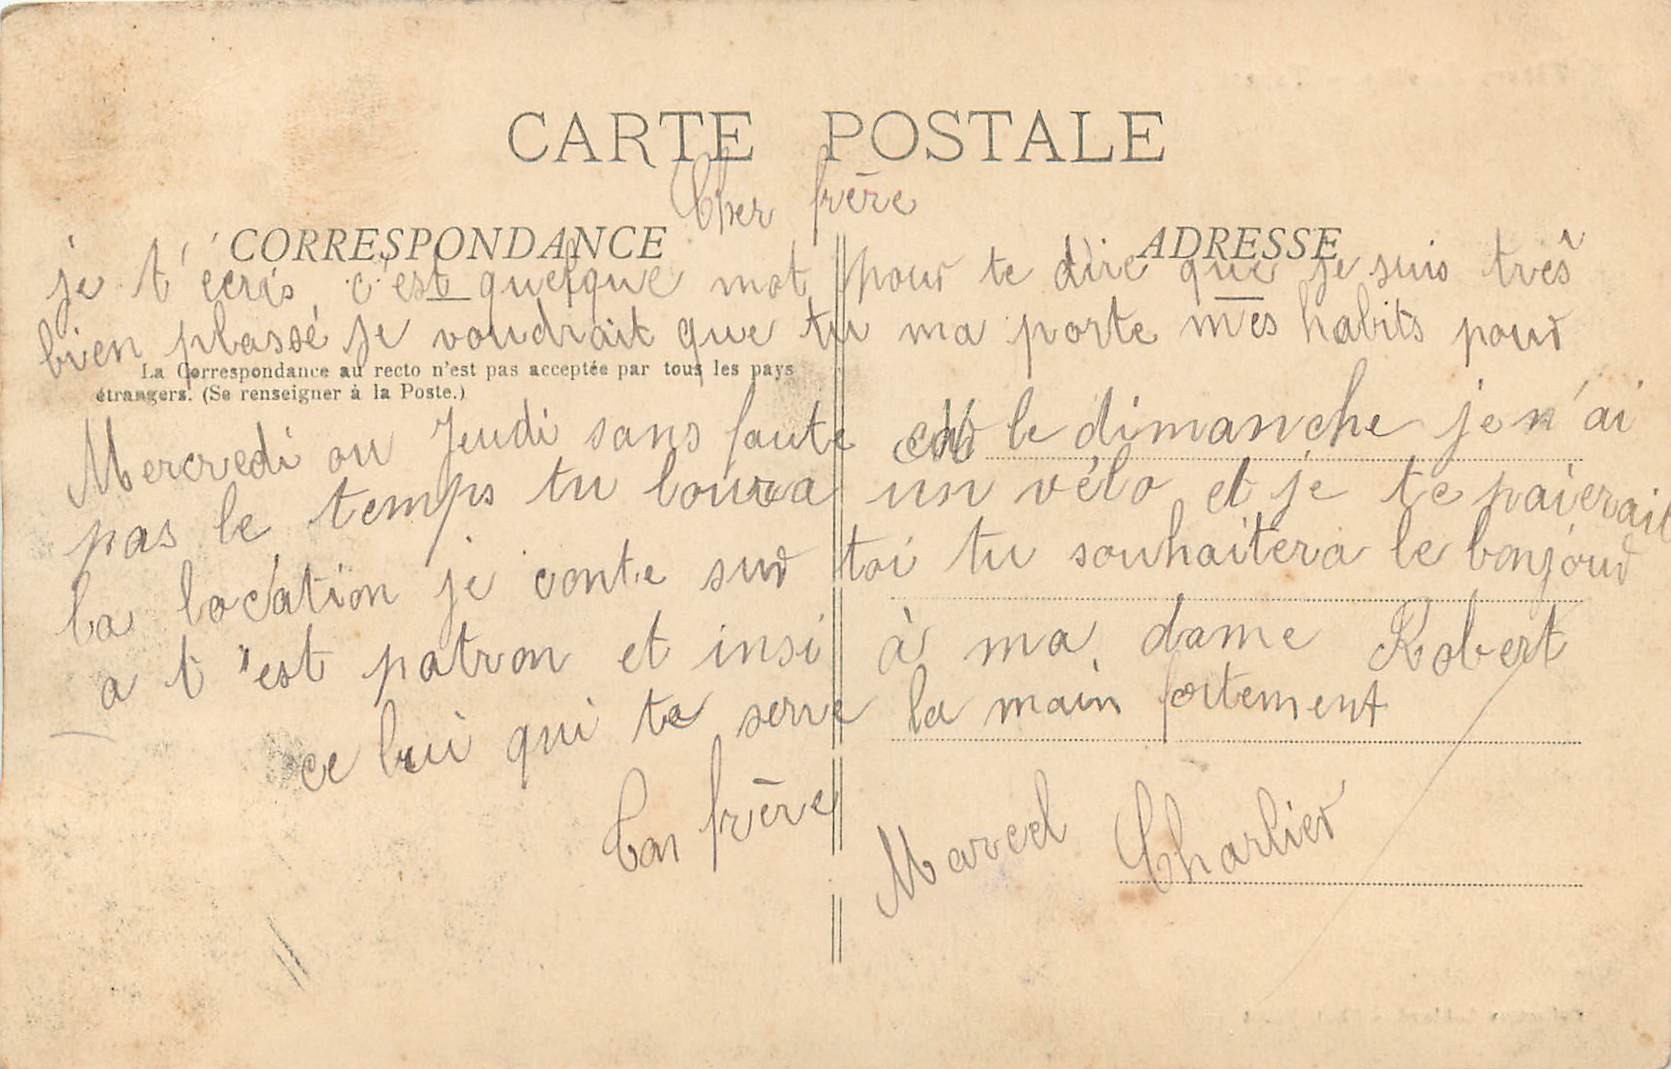 CARTE POSTALE
Cher frère
CORRESPONDANCE
ADRESSE
je t'écris c'est quelque mot pour te dire que je suis très
bien plassé je voudrait que tu ma porte mes habits pour
La Correspondance au recto n'est pas acceptée par tous les pays
étrangers. (Se renseigner à la Poste.)
Mercredi ou Jeudi sans faute car le dimanche je n'ai
pas le temps tu loura un vélo et je te paierait
la location je conte sur toi tu souhaitera le bonjour
a t'est patron et insi à ma dame Robert
ce lui qui te serre la main fortement
Ton frère
Marcel Charlier